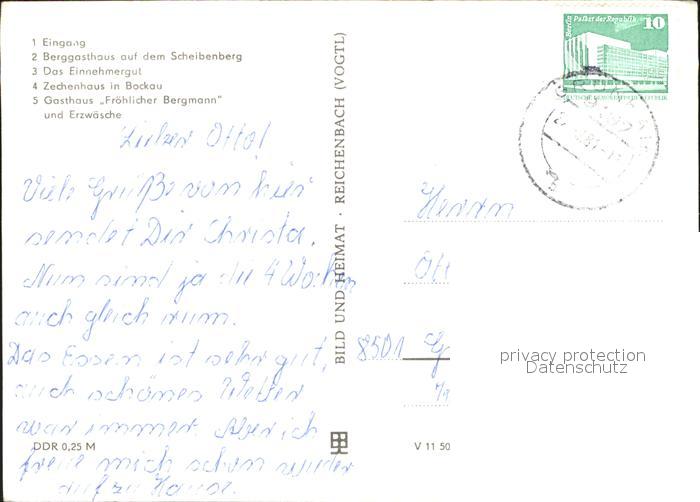 1 Eingang
2 Berggasthaus auf dem Scheibenberg
3 Das Einnehmergut
4 Zechenhaus in Bockau
5 Gasthaus „Fröhlicher Bergmann"
und Erzwäsche
Lieber Otto!
Viele Grüße von hier
sendet Dir Christa.
Nun sind ja die 4 Wochen
auch gleich rum.
Das Essen ist sehr gut,
auch schönes Wetter
war immer. Aber ich
freue mich schon wieder
auf zu Hause.
DDR 0,25 M
BILD UND HEIMAT · REICHENBACH (VOGTL)
V 11 50
Berlin Palast der Republik
10
DEUTSCHE DEMOKRATISCHE REPUBLIK
Herrn
Ott
8501 G
privacy protection
Datenschutz